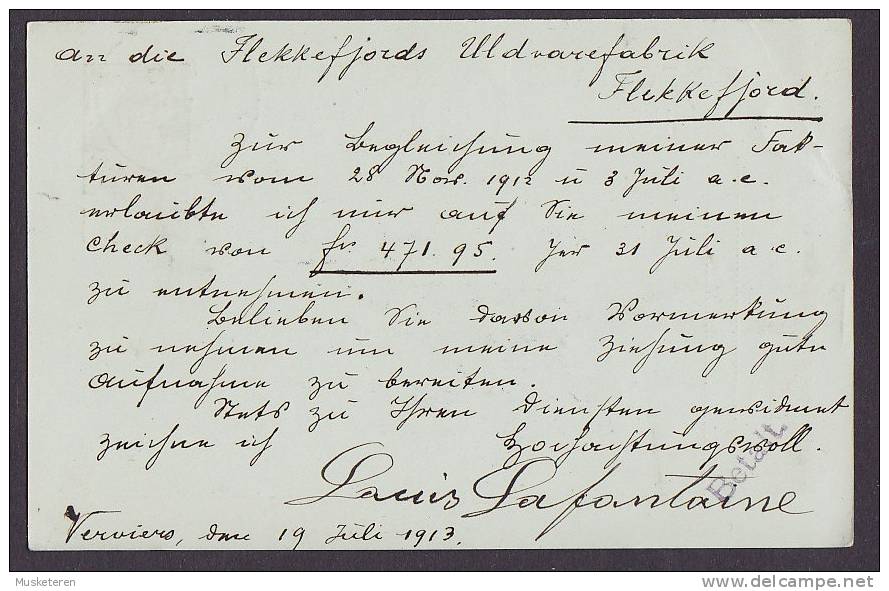 an die Flekkefjords Uldvarefabrik
Flekkefjord.
Zur Begleichung meiner Fak-
turen vom 28 Nov. 1912 u 3 Juli a.c.
erlaubte ich mir auf Sie meinen
Check von fr. 471.95. per 31 Juli a c.
zu entnehmen.
Belieben Sie davon Vormerkung
zu nehmen um meine Ziehung gute
Aufnahme zu bereiten.
Stets zu Ihren Diensten gewidmet
zeichne ich Hochachtungsvoll.
Betalt
Louis Lafontaine
Verviers, den 19 Juli 1913.
Musketeren
delcampe.net